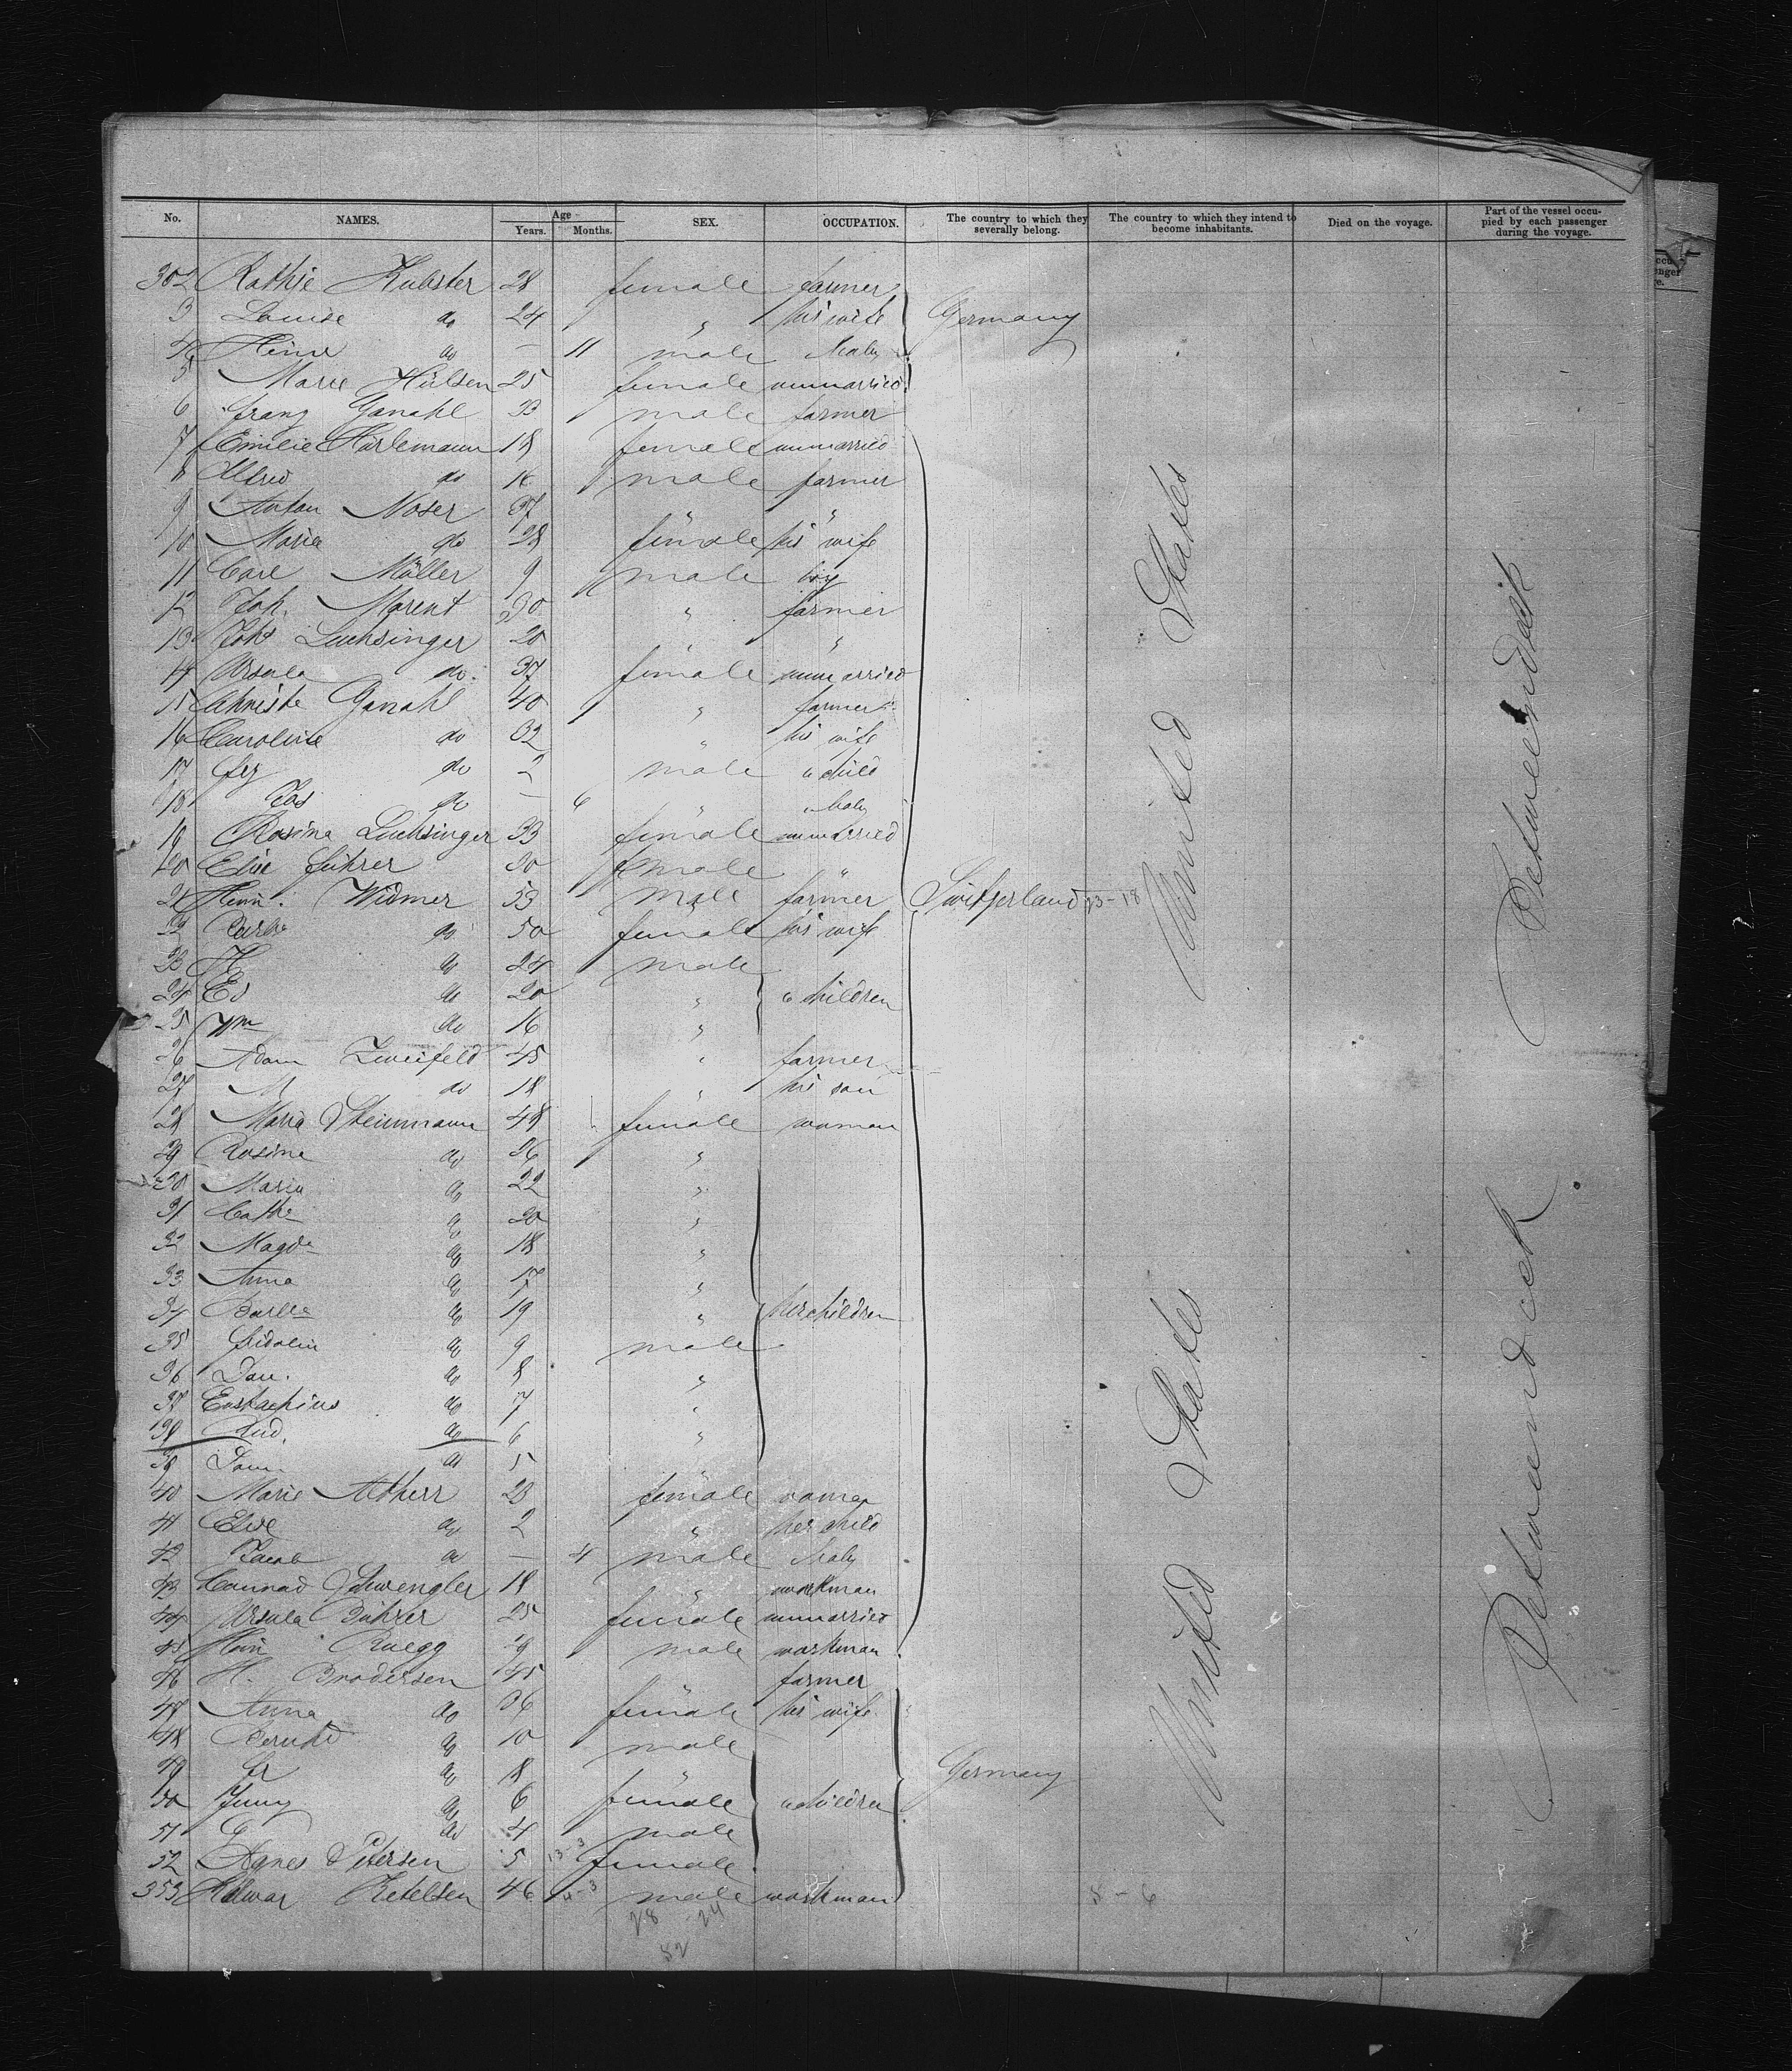 No. NAMES. Age Years. Months. SEX. OCCUPATION. The country to which they severally belong. The country to which they intend to become inhabitants. Died on the voyage. Part of the vessel occupied by each passenger during the voyage.
302 Kathje Hubster 28 female farmer
3 Louise do 24 " his wife Germany
4 Heinr do — 11 male baby
5 Marie Hülsen 25 female unmarried
6 Franz Ganahl 33 male farmer
7 Emilie Härlemann 18 female unmarried
8 Alfred do 16 male farmer
9 Anton Noser 37 " "
10 Maria do 28 female his wife
11 Carl Müller 9 male boy
12 Joh. Marent 30 " farmer
13 Joh Luchsinger 20 " "
14 Ursula do. 37 female unmarried
15 Christe Ganahl 40 " farmer
16 Caroline do 32 " his wife
17 do 2 male child
18 Jos do — 6 " baby
19 Rosina Luchsinger 33 female unmarried
20 Elise Führer 30 female "
21 Heinr. Widmer 53 male farmer Switzerland 23-18
22 Barba do 50 female his wife
23 H do 24 male
24 Ed do 20 " children
25 Wm do 16 "
26 Adam Zweifeld 45 " farmer
27 M do 18 " his son
28 Maria Steinmann 48 female woman
29 Rosina do 26 "
30 Maria do 22 "
31 Cathe do 20 "
32 Magda do 18 "
33 Anna do 17 "
34 Barba do 19 " her children
35 Fridolin do 9 male
36 Dan. do 8 "
37 Eustachius do 7 "
38 Rud. do 6 "
39 do 5
40 Marie Altherr 23 female woman
41 Elise do 2 " her child
42 Jacob do — 4 male baby
43 Connad Schwengler 18 " workman
44 Ursula Bührer 25 female unmarried
45 Hein Ruegg 29 male workman
46 H. Brodersen 45 farmer
47 Anna do 36 female his wife
48 do 10 male
49 do 8 " Germany
50 Jenny do 6 female children
51 do 4 male
52 Agnes Petersen 5 13-3 female
353 Ketelsen 46 4-3 male workman 5-6
28 24
52
United States
United States
Between deck
Between deck